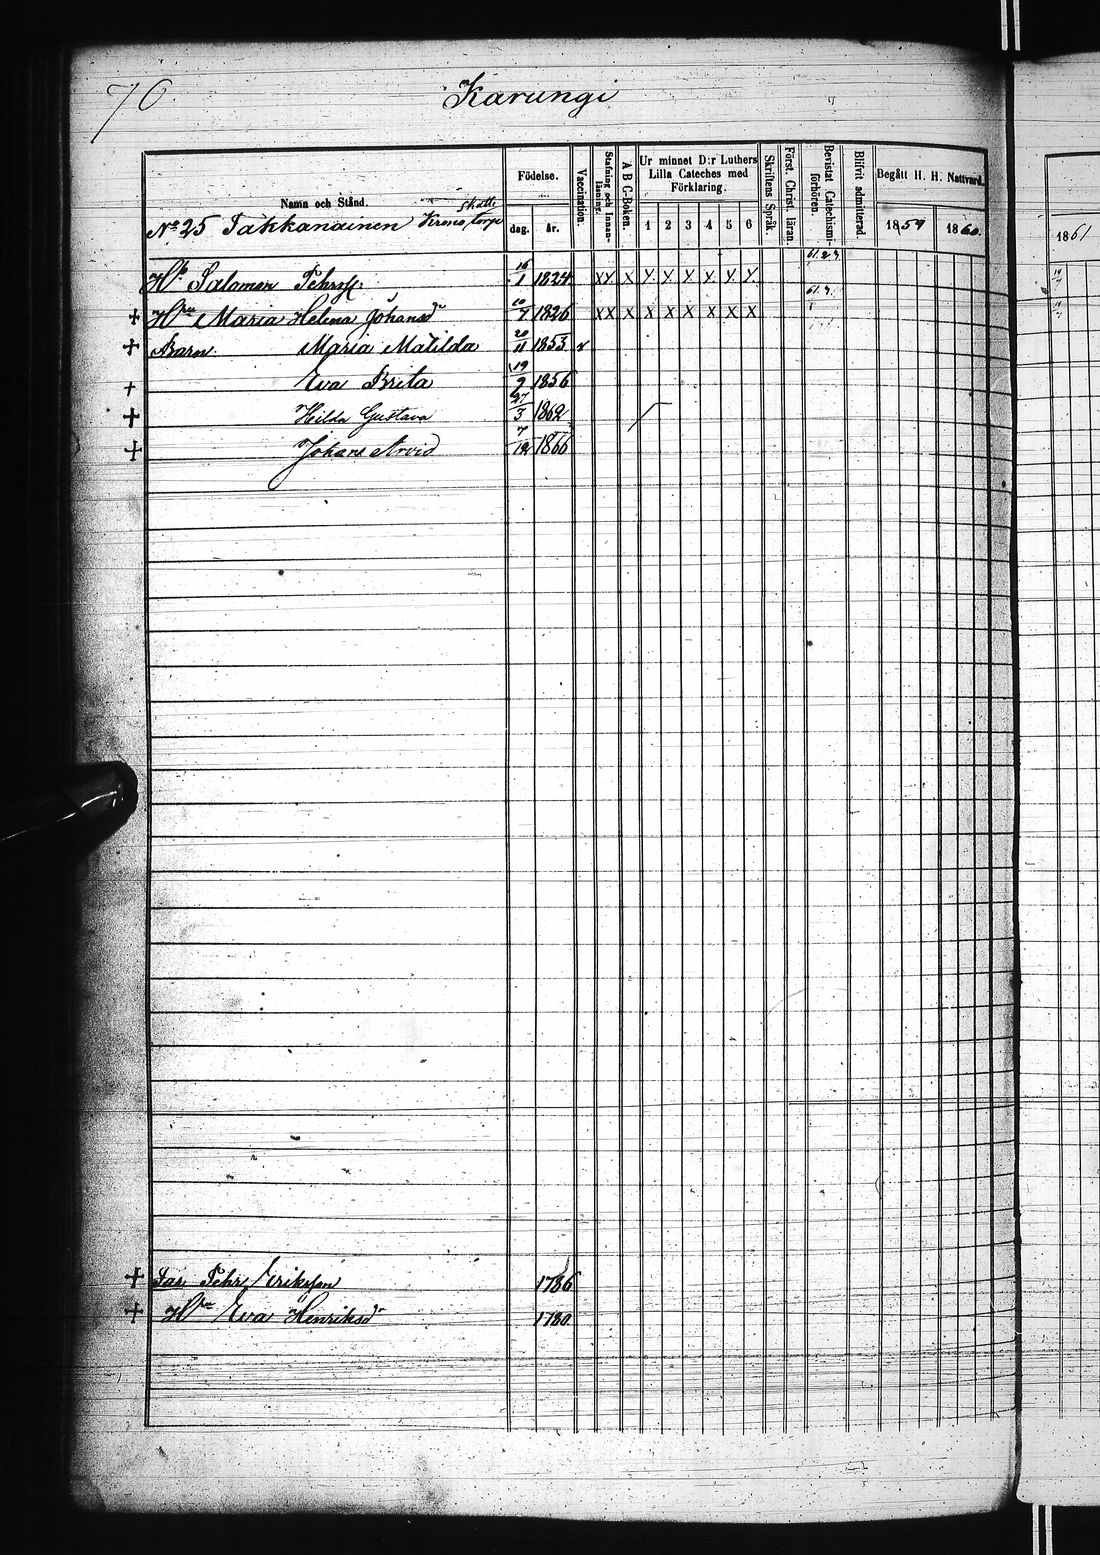 70
Karungi
Namn och Stånd.
Födelse.
dag. år.
Vaccination.
Stafning och Innanläsning.
A B C-Boken.
Ur minnet D:r Luthers Lilla Cateches med Förklaring.
1 2 3 4 5 6
Skriftens Språk
Först. Christ. läran.
Bevistat Catechismiförhören.
Blifvit admitterad.
Begått H. H. Nattvard.
1859 1860.
1861
No 25 Takkanainen Krono torp
Skatte
Salomon Pehrss. 16/1 1824. XX X Y X X X X Y.
+ Hru Maria Helena Johansdr 10/7 1826 XX X X X X X X X
+ Barn. Maria Matilda 20/11 1853 v
+ Eva Brita 19/9 1856
+ Hilda Gustava 27/3 1862
+ Johan Arvid 7/12 1866
+ Far Pehr Eriksson 1786
+ Hru Eva Henriksdr 1780